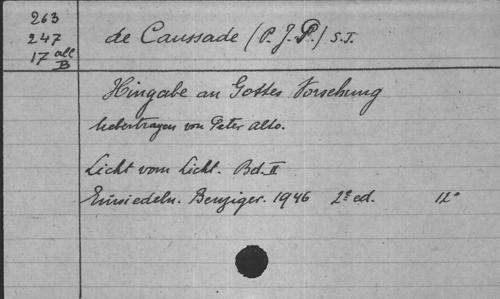 263
247
17 all
B
de Caussade (P. J. P.) S.J.
Hingabe an Gottes Vorsehung
Uebertragen von Peter Alto.
Licht vom Licht. Bd. II
Einsiedeln. Benziger. 1946 2e ed. 12°